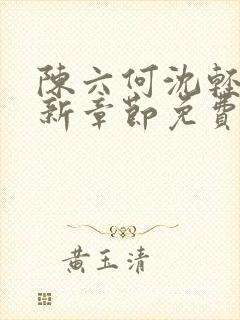 陳六何沈輕
新章節免費
黃玉清